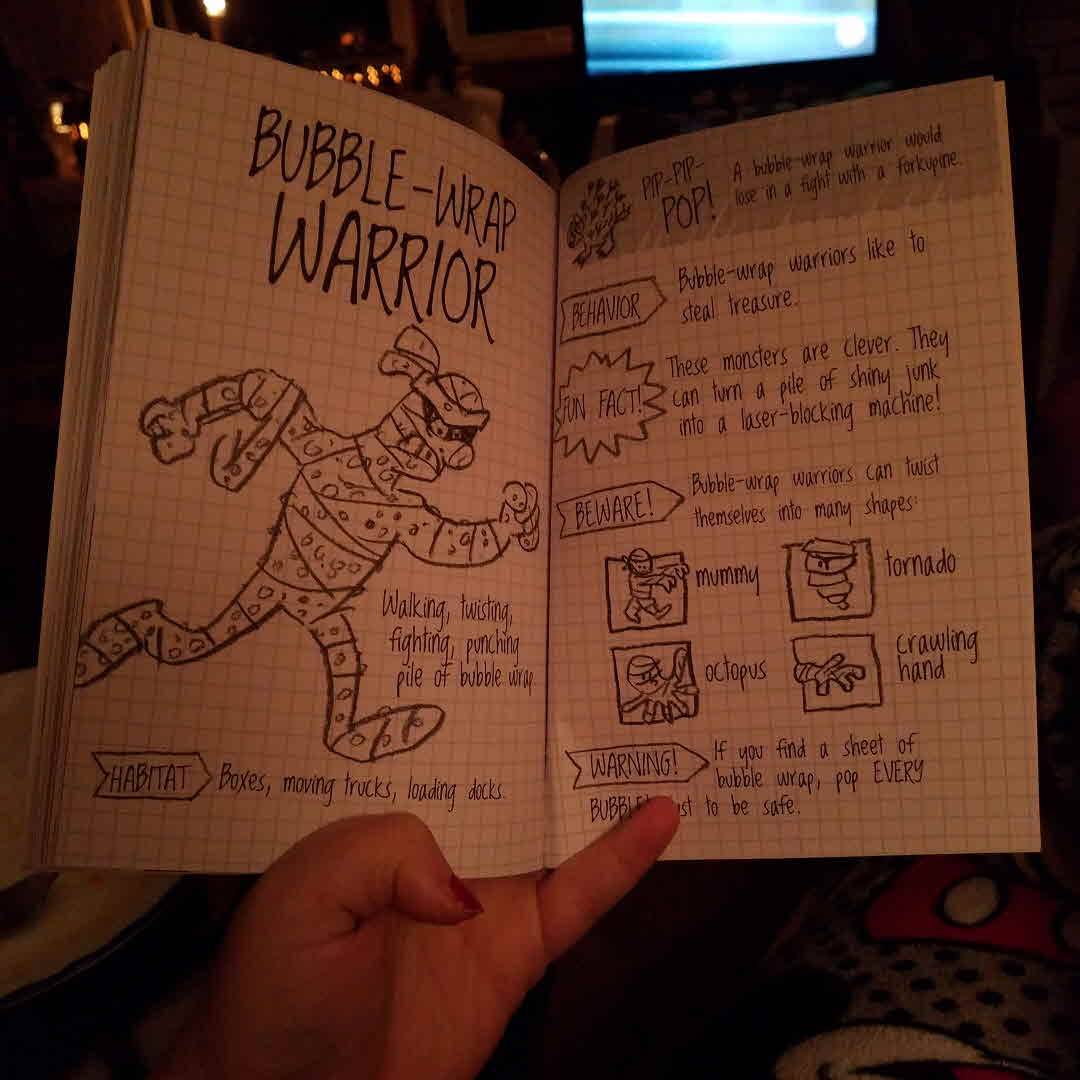 BUBBLE-WRAP
WARRIOR
Walking, twisting,
fighting, punching
pile of bubble wrap
HABITAT
Boxes, moving trucks, loading docks.
PIP-PIP-
POP!
A bubble-wrap warrior would
lose in a fight with a forkupine.
BEHAVIOR
Bubble-wrap warriors like to
steal treasure.
FUN FACT!
These monsters are clever. They
can turn a pile of shiny junk
into a laser-blocking machine!
BEWARE!
Bubble-wrap warriors can twist
themselves into many shapes:
mummy
tornado
octopus
crawling
hand
WARNING!
If you find a sheet of
bubble wrap, pop EVERY
to be safe.